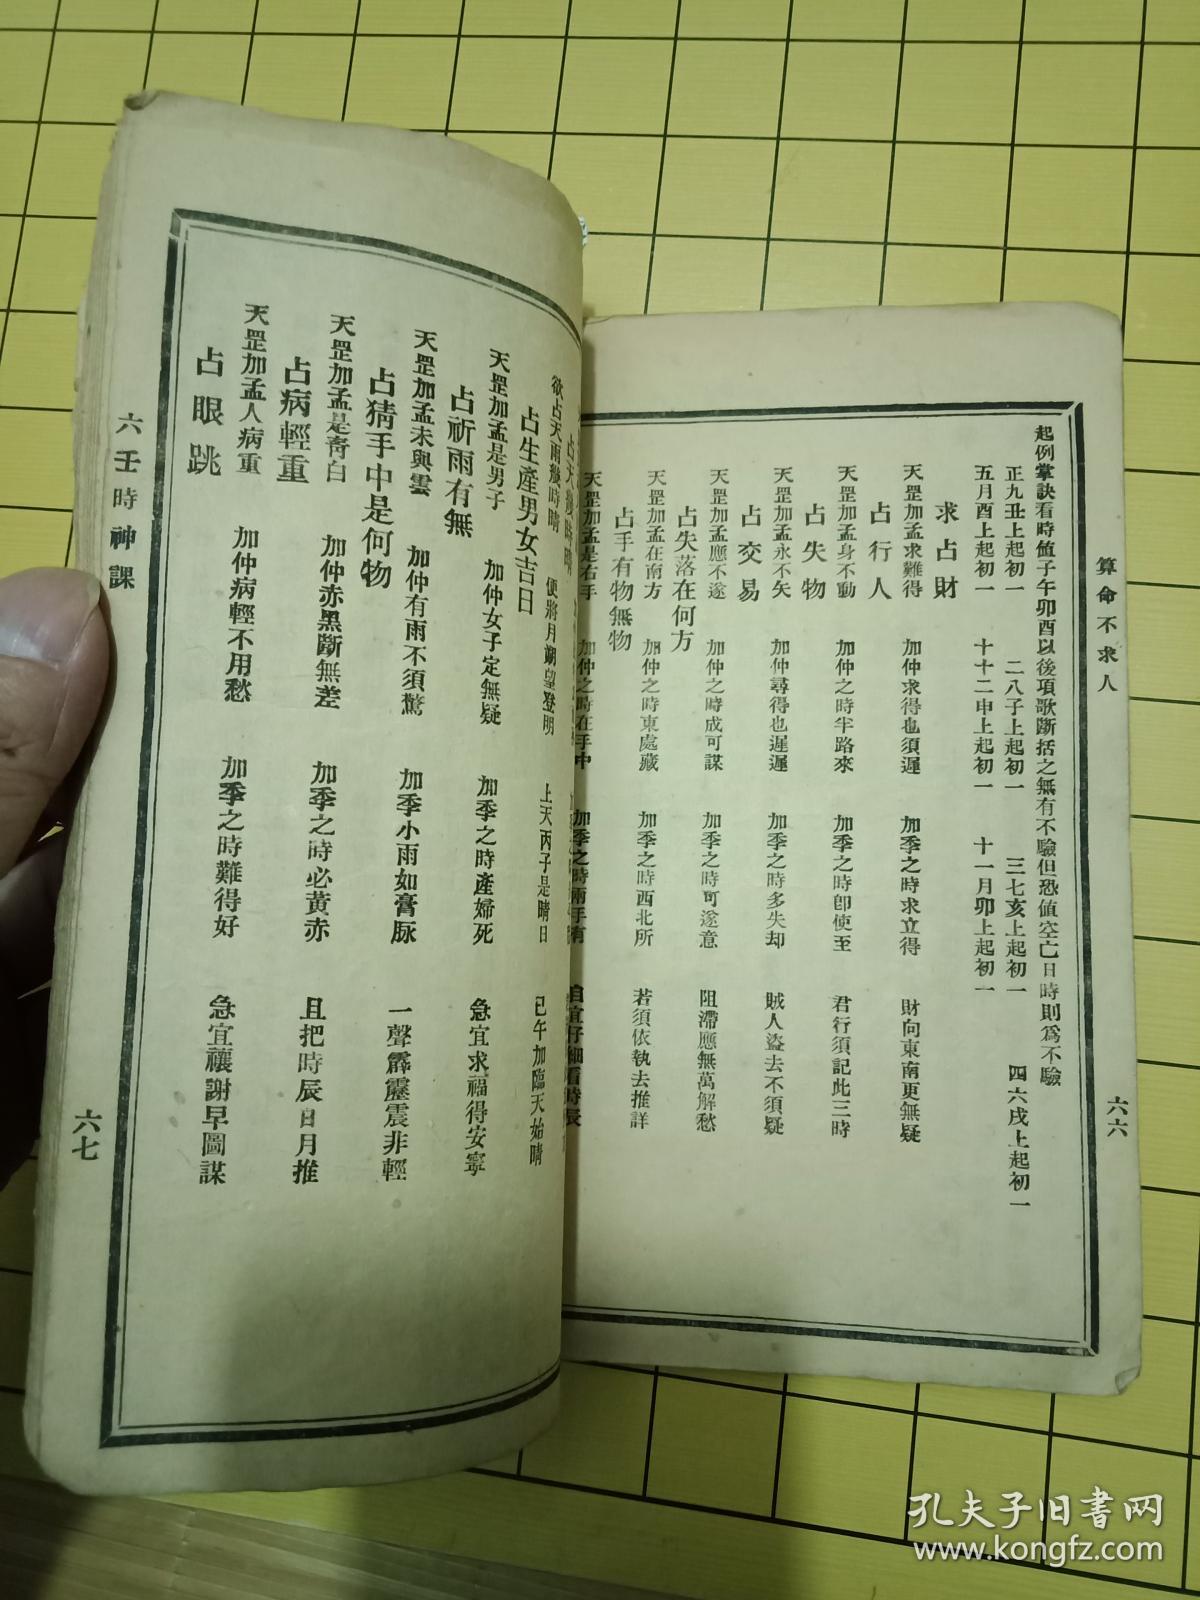 算命不求人
六六
起例掌訣看時値子午卯酉以後項歌斷括之無有不驗但恐値空亡日時則爲不驗
正九丑上起初一 二八子上起初一 三七亥上起初一 四六戌上起初一
五月酉上起初一 十十二申上起初一 十一月卯上起初一
求占財
天罡加孟求難得 加仲求得也須遲 加季之時求立得 財向東南更無疑
占行人
天罡加孟身不動 加仲之時半路來 加季之時卽使至 君行須記此三時
占失物
天罡加孟永不矢 加仲尋得也遲遲 加季之時多失却 賊人盜去不須疑
占交易
天罡加孟應不遂 加仲之時成可謀 加季之時可遂意 阻滯應無萬解愁
占失落在何方
天罡加孟在南方 加仲之時東處藏 加季之時西北所 若須依執去推詳
占手有物無物
天罡加孟是右手 加仲之時在手中 加季之時兩手有 宜仔細看時辰
占天幾時晴
欲占天雨幾時晴 便將月朔望登明 上天丙子是晴日 已午加臨天始晴
占生產男女吉日
天罡加孟是男子 加仲女子定無疑 加季之時產婦死 急宜求福得安寧
占祈雨有無
天罡加孟未與雲 加仲有雨不須驚 加季小雨如膏脉 一聲霹靂震非輕
占猜手中是何物
天罡加孟是靑白 加仲赤黑斷無差 加季之時必黃赤 且把時辰日月推
占病輕重
天罡加孟人病重 加仲病輕不用愁 加季之時難得好 急宜禳謝早圖謀
占眼跳
六壬時神課
六七
孔夫子旧書网
www.kongfz.com